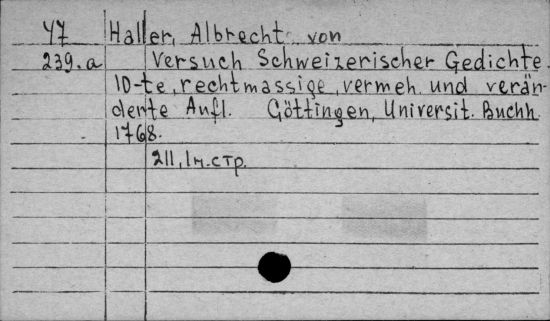 47 Haller, Albrecht von
239.a Versuch Schweizerischer Gedichte.
10-te, rechtmassige, vermeh. und verän-
derte Aufl. Göttingen, Universit. Buchh.
1768.
211, 1 н.стр.